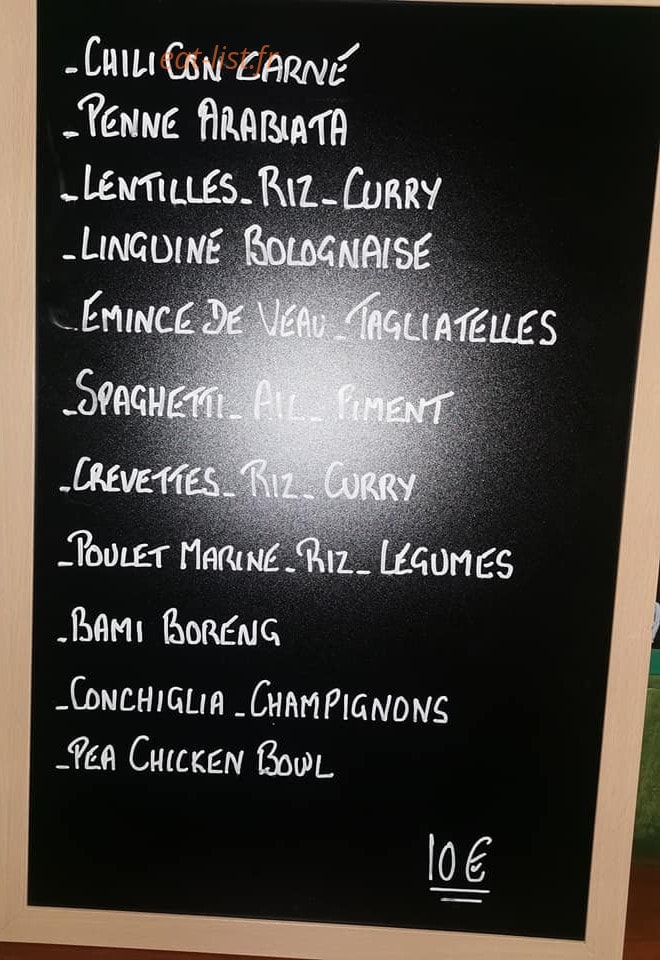 eat-list.fr
-CHILI CON CARNÉ
-PENNE ARABIATA
-LENTILLES-RIZ-CURRY
-LINGUINÉ BOLOGNAISE
-EMINCE DE VEAU-TAGLIATELLES
-SPAGHETTI-AIL-PIMENT
-CREVETTES-RIZ-CURRY
-POULET MARINE-RIZ-LÉGUMES
-BAMI BORENG
-CONCHIGLIA-CHAMPIGNONS
-PEA CHICKEN BOWL
10€